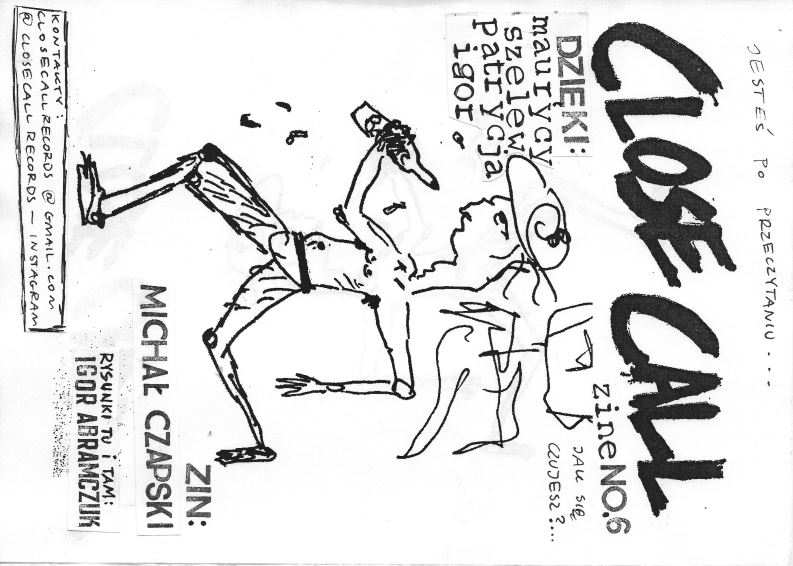 JESTEŚ PO PRZECZYTANIU...
CLOSE CALL
zine NO.6
JAK SIĘ
CZUJESZ?...
DZIĘKI:
maurycy
szelew
patrycja
igor
ZIN:
MICHAŁ CZAPSKI
RYSUNKI TU i TAM:
IGOR ABRAMCZUK
KONTAKTY:
CLOSECALLRECORDS @ GMAIL.COM
@ CLOSECALL RECORDS — INSTAGRAM